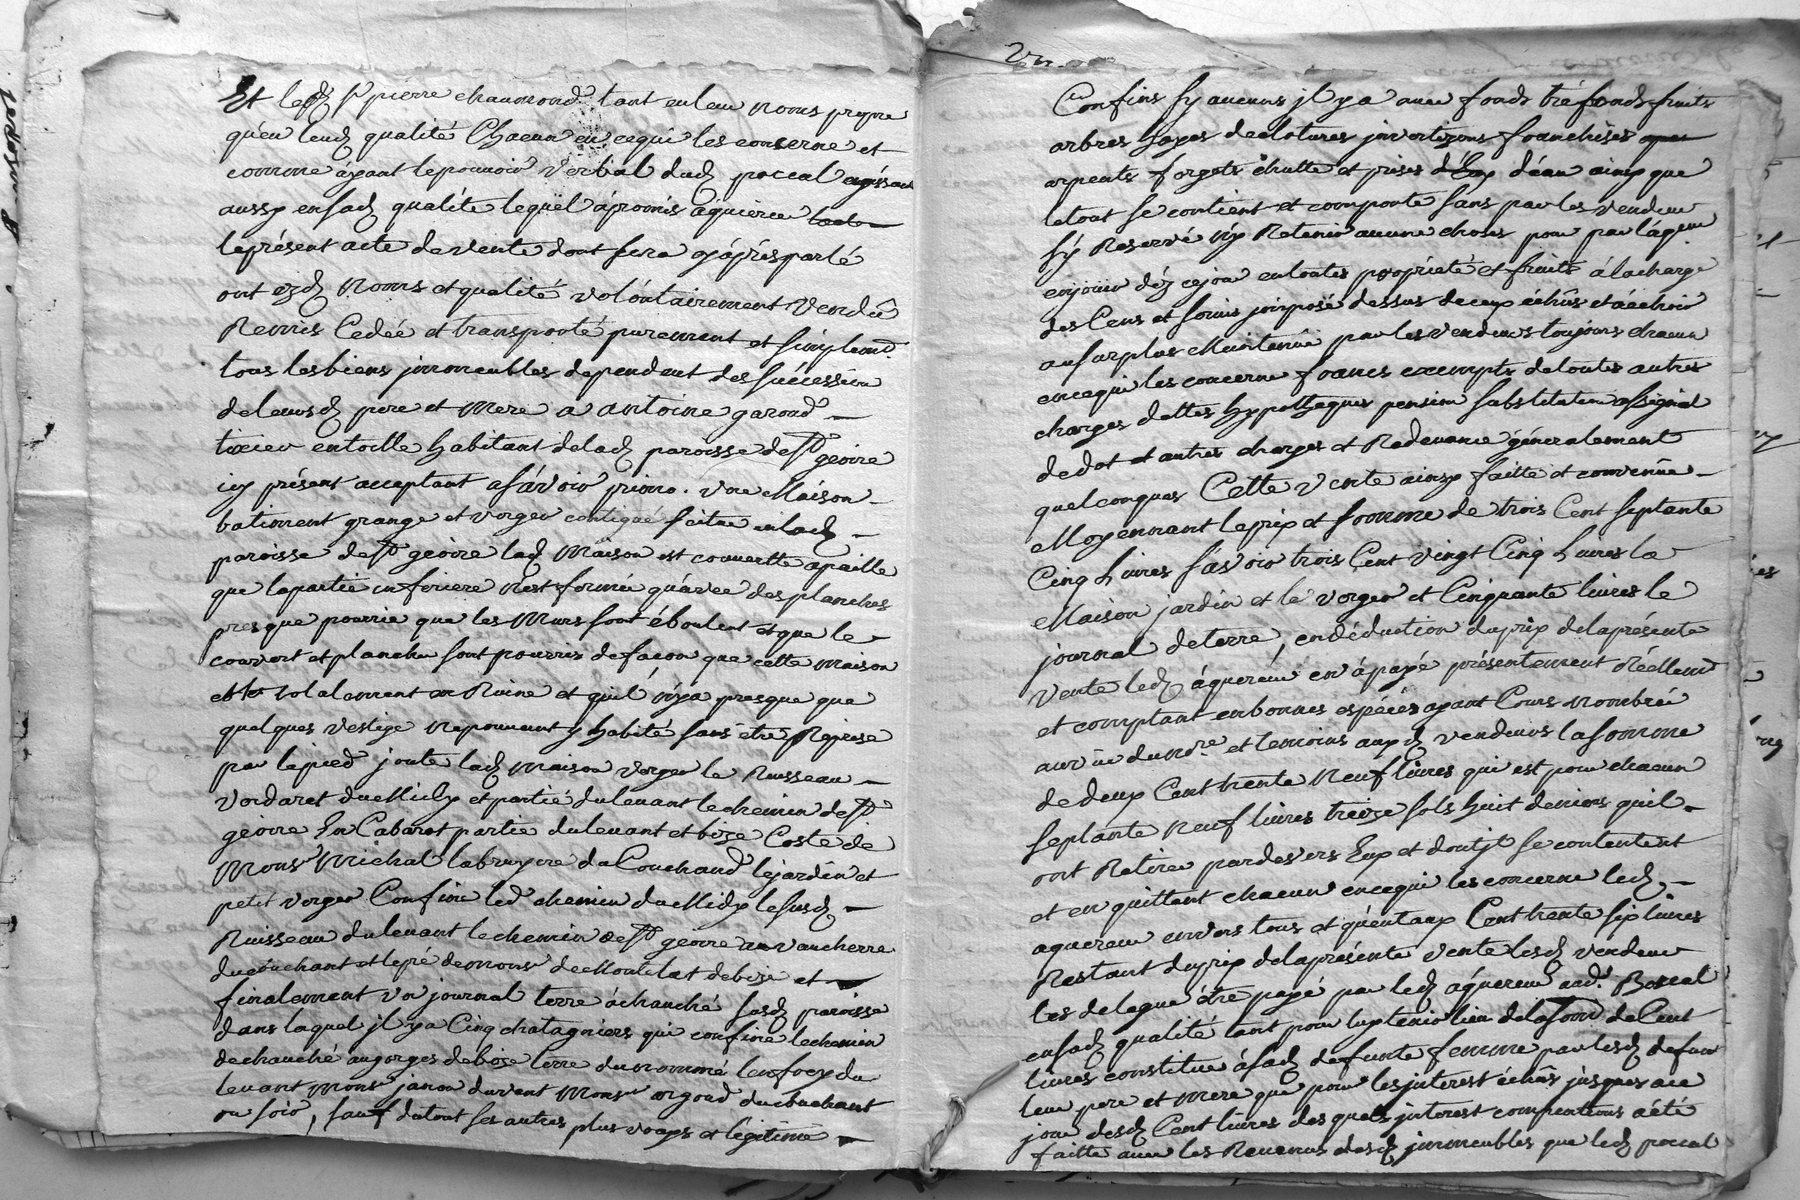 Et led. Sr pierre chaumond tant en leur noms propre
qu'en leurd. qualité Chacun en cequi les conserne et
comme ayant lepouvoir verbal dud. poccal agissant
aussy en sad. qualité lequel apromis aquierir
leprésent acte de vente dont sera cyáprés parlé
ont ezd. Noms et qualité volóntairement vendû
Remis Cedée et transporté purement et simplemt
tous les biens jmmeubles dependent des succéssion
de leursd. pere et mere a antoine garond
tixieu entoille habitant delad. paroisse de St geoire
icy présent acceptant asávoir primo. une Maison
batiment grange et verger contigue scitue en lad.
paroisse de St geoire lad. Maison est couverte apaille
que lapartie inferiere n'est formée quávec des planches
presque pourrie que les Murs sont éboulent et que le
couvert et plancher sont pourris defacon que cette maison
est totalement en Ruine et quil n'ya presque que
quelques vestige nepouvant y habité sans être Reprise
par lepied jouxte lad. maison verger le Ruisseau
verdaret du Midy et partié du levant le chemin de St
géoire En Cabarot partie dulevant et bize Coste de
Monsr Michal labruyere du Couchand le jardin et
petit verger Confine led. chemin du Midy le susd.
Ruisseau du levant le chemin de St géoire a vaucherre
ducouchant et le pré de monsr de Montelat debize et
finalement un journal terre áchanché susd. paroisse
dans laquel jl ya Cinq chatagniers qui confine lechemin
de chauché augorges debize terre du nommé
levant monsr janon du vent Monsr ducouchant
ou soir, sauf dutout ses autres plus vrays et légitime
Confins sy aucuns jl y a avec fonds tréfonds fruits
arbres hayes de clotures franchises
arpents forgets chutte et prises d'eau ainsy que
letout se contient et comporte sans par les vendeur
sÿ Reservé nÿ Retenir aucune choses pour par laqueur
enjouir déz cejour entoutes propriété et fruits álacharge
des Cens et servis jmposé dessus deceux échûs et áéchoir
ausurplus Maintenûe par les vendeurs toujours chacun
encequi les concerne francs exempts de toutes autres
charges dettes hypothegues pension substitution assignal
de dot et autres charges et Redevance géneralement
quelconques Cette vente ainsy faitte et convenûe
Moyennant leprix et somme de trois Cent septante
Cinq Livres sávoir trois Cent vingt Cinq Livres la
Maison jardin et le verger et Cinquante livres le
journal de terre, en déduction duprix de laprésente
vente led. áquereur en á payé présentement Réellemt
et comptant en bonnes espéces ayant Cours nombréé
aux d. vendeurs la somme
de deux Cent trente Neuf livres qui est pour chacun
septante neuf livres treize sols huit deniers quil
ont Retiré pardevers Eux et dont jl se contentent
et en quittent chacun encequi les concerne led.
aquereur envers tous et quéntaux Cent trente six livres
Restant du prix de laprésente vente lesd. vendeur
les delegue étre payé par led. áquereur aud. Poccal
ensad. qualité tant pour luy tenir lieu de la somme de Cent
livres constitue ásad. defunte femme par lesd. defun
leur pere et mere que pour les jnterest échûs jusques ace
jour desd. Cent livres des quels jnterest compentions áété
faitte avec les Revenus desd. jmmeubles que led. poccal